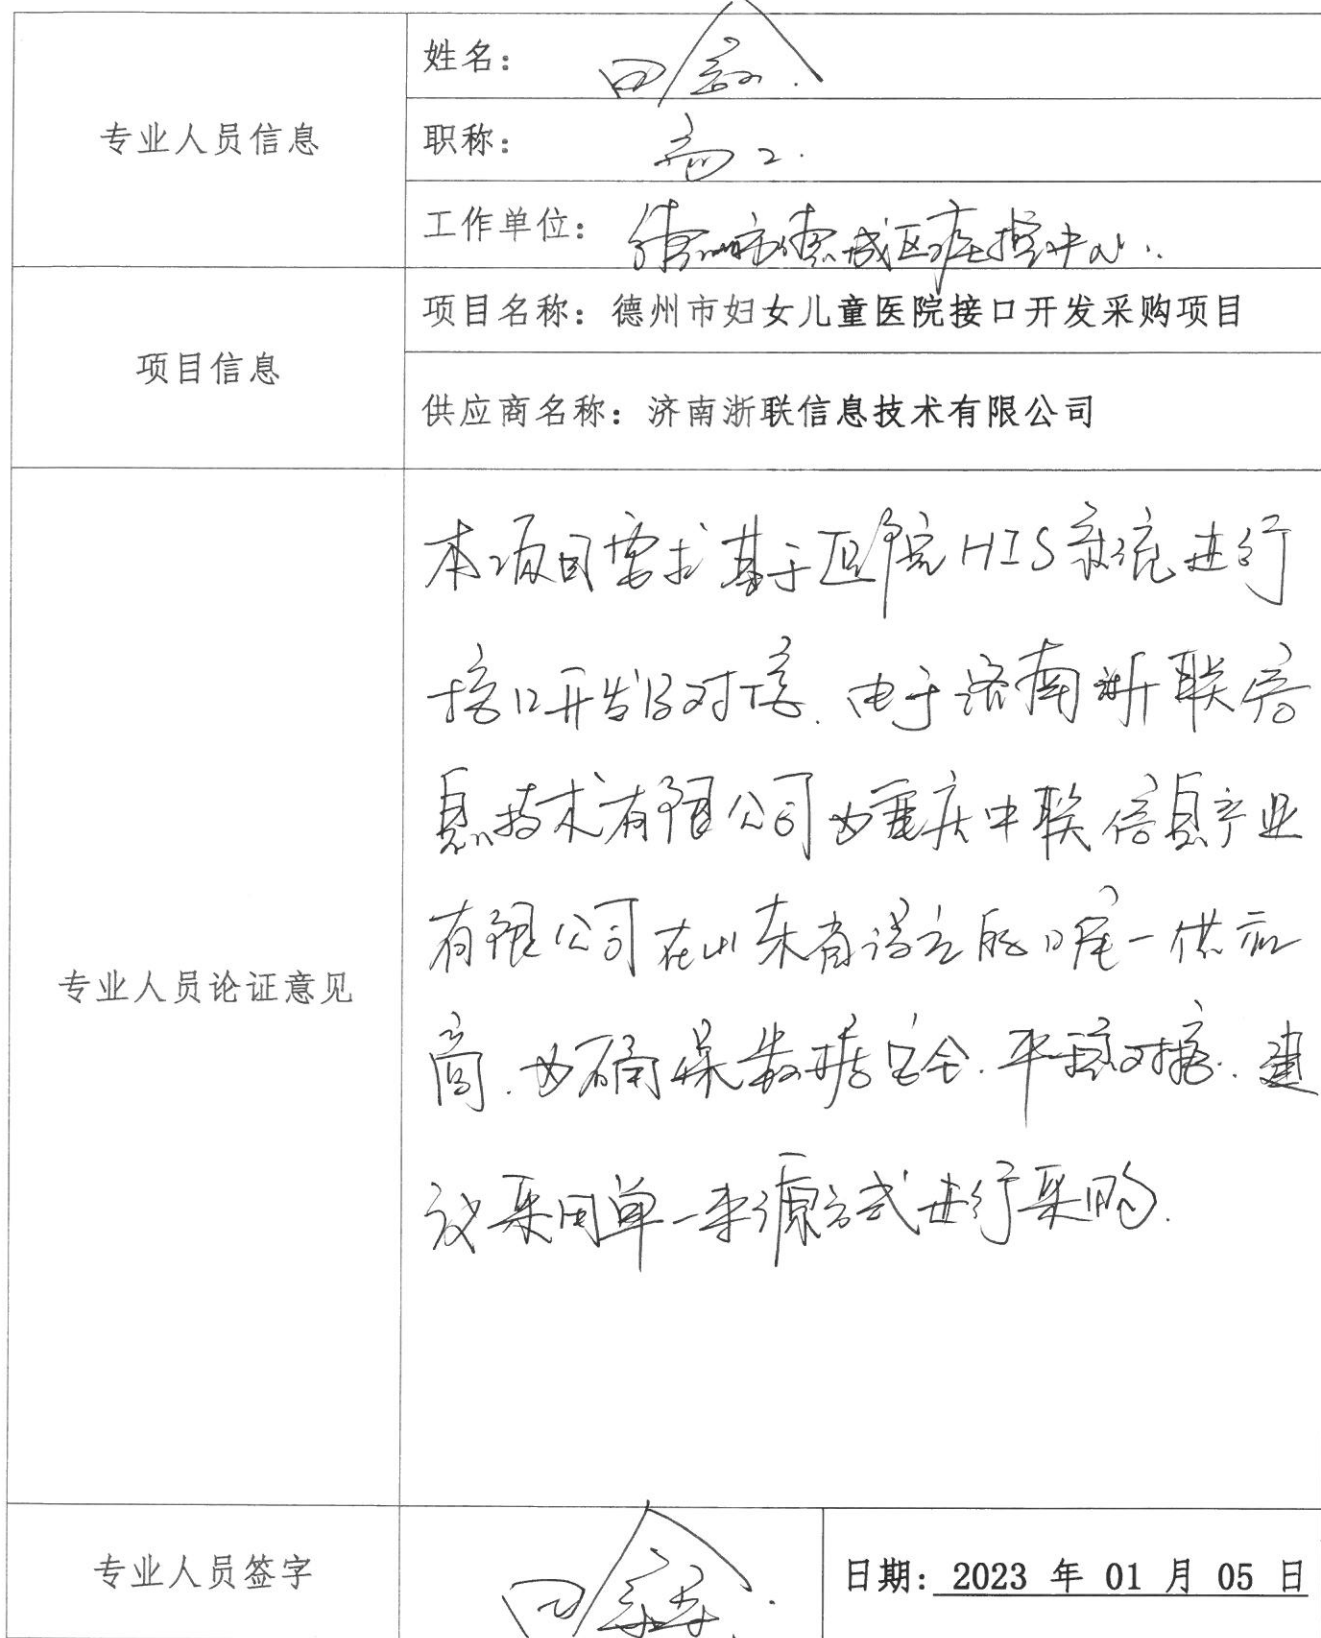 专业人员信息
姓名：田
职称：高工.
工作单位：德州市德城区疾控中心.
项目信息
项目名称：德州市妇女儿童医院接口开发采购项目
供应商名称：济南浙联信息技术有限公司
专业人员论证意见
本项目需求基于医院HIS系统进行
接口开发及对接.由于济南浙联信
息技术有限公司为重庆中联信息产业
有限公司在山东省设立的唯一供应
商.为确保数据安全.平稳对接.建
议采用单一来源方式进行采购.
专业人员签字
田
日期：2023 年 01 月 05 日